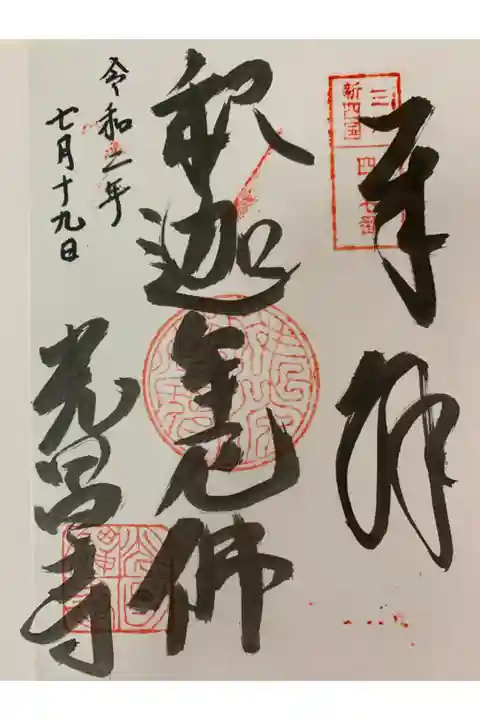 奉拝
三
新四国
四 七番
釈迦牟尼佛
令和二年
七月十九日
光昌寺